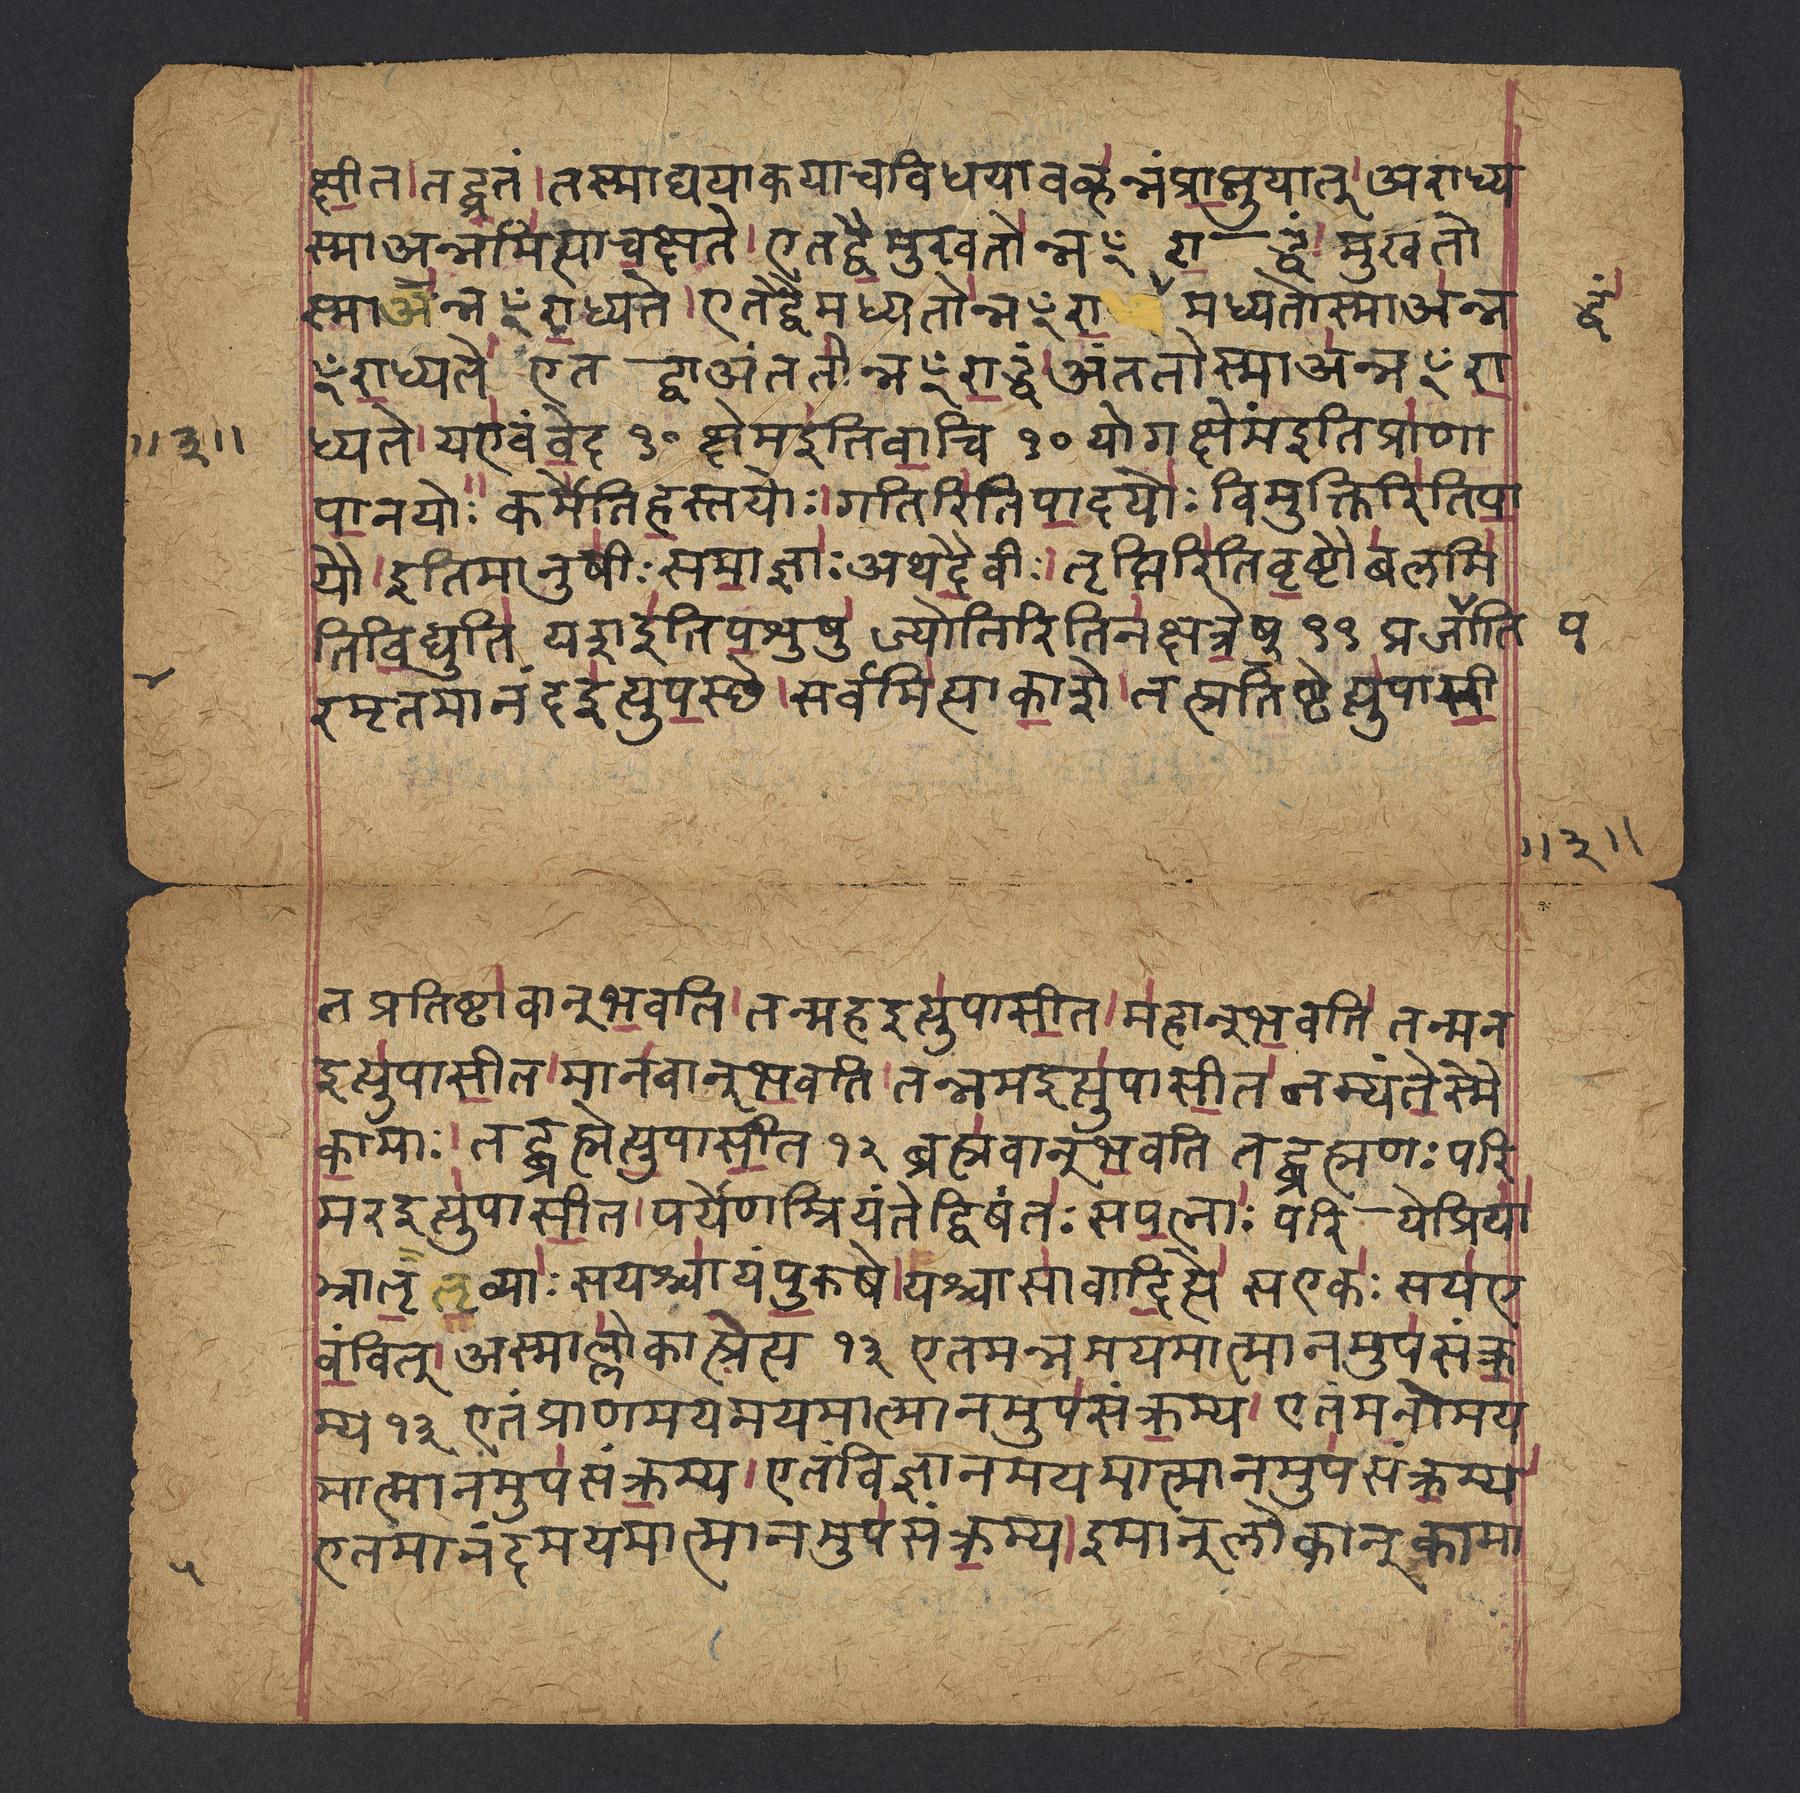 क्षीत। तद्व्रतं। तस्माद्ययाकयाचविधयावव्हन्नंप्राप्नुयात्। अराध्य
स्माअन्नमित्याचक्षते। एतद्वैमुखतोन्नꣳ राद्धं। मुखतो
स्माअन्नꣳराध्यते। एतद्वैमध्यतोन्नꣳरा मध्यतोस्माअन्न द्धं
ꣳराध्यते एतद्वाअंततोन्नꣳराद्धं। अंततोस्माअन्नꣳरा
॥३॥ ध्यते। यएवंवेद १० क्षेमइतिवाचि १० योगक्षेमइतिप्राणा
पानयोः कर्मेतिहस्तयोः। गतिरितिपादयोः विमुक्तिरितिपा
यौ। इतिमानुषीः समाज्ञाः अथदैवीः। तृप्तिरितिवृष्टौ बलमि
तिविद्युति यशइतिपशुषु ज्योतिरितिनक्षत्रेषु ११ प्रजॉति प
रमृतमानंदइत्युपस्छे। सर्वमित्याकाशे। तत्प्रतिष्टेत्युपासी
॥३॥
त प्रतिष्टावान्भवति। तन्महइत्युपासीत। महान्भवति तन्मन
इत्युपासीत। मानवान्भवति। तन्नमइत्युपासीत नम्यंतेस्मै
कामाः। तद्ब्रह्मेत्युपासीत १२ ब्रह्मवान्भवति तद्ब्रह्मणः परि
मरइत्युपासीत। पर्येणम्रियंतेद्विषंतः सपत्नाः परि येप्रिया
भ्रातृ तृव्याः सयश्चायंपुरुषे। यश्चासावादित्ये सएकः सयए
वंवित्। अस्माल्लोकात्प्रेत्य १३ एतमन्नमयमात्मानमुपसंक्र
म्य १३ एतंप्राणमयमयमात्मानमुपसंक्रम्य। एतंमनोमय
मात्मानमुपसंक्रम्य। एतंविज्ञानमयमात्मानमुपसंक्रम्य
एतमानंदमयमात्मानमुपसंक्रम्य। इमान्लोकान्कामा
५